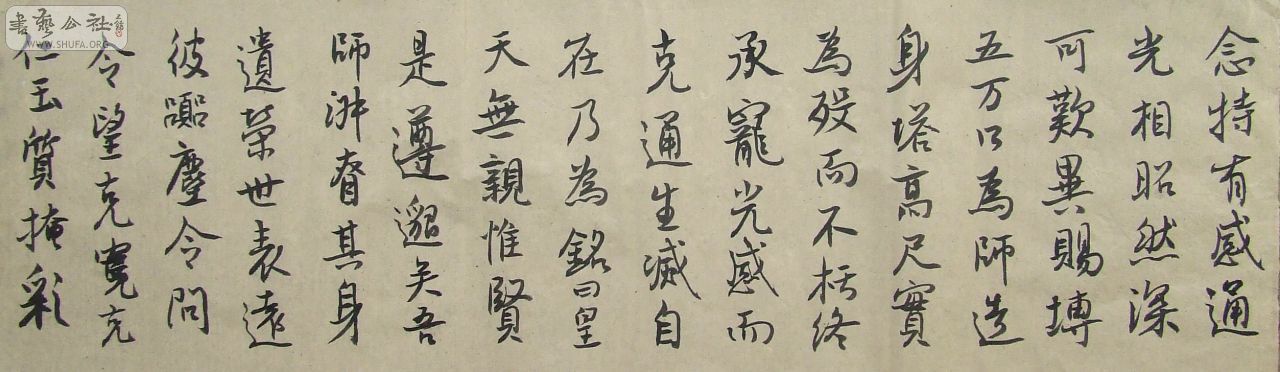 書藝公社
WWW.SHUFA.ORG
念持有感通
光相昭然深
可歎異賜塼
五万口為師造
身塔高尺實
為歿而不朽終
承寵光感而
克通生滅自
在乃為銘曰皇
天無親惟賢
是遵邈矣吾
師淋眘其身
遺榮世表遠
彼囂塵令問
令望克寬克
仁玉質掩彩